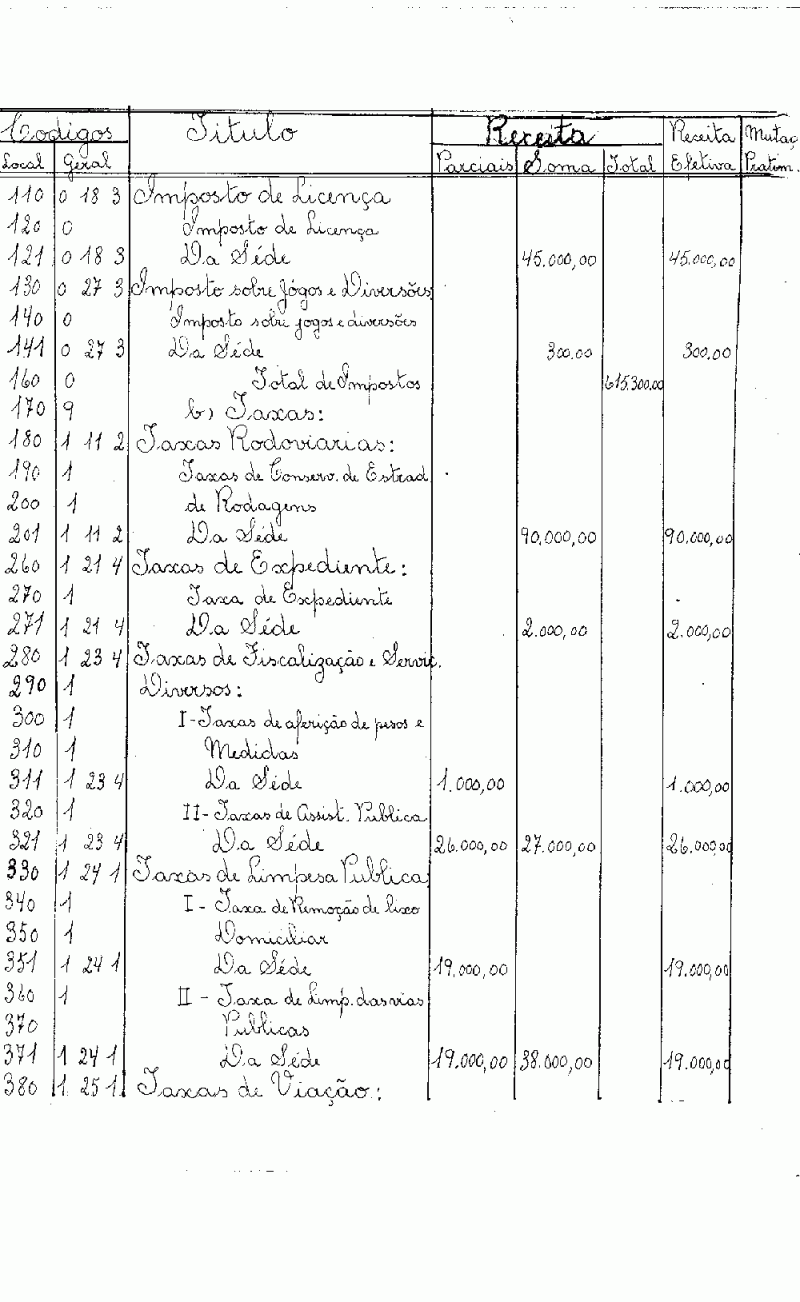 Codigos Titulo Receita Receita Mutaç.
Local Geral Parciais Soma Total Efetiva Patim.
110 0 18 3 Imposto de Licença
120 0 Imposto de Licença
121 0 18 3 Da Séde 45.000,00 45.000,00
130 0 27 3 Imposto sobre Jogos e Diversões
140 0 Imposto sobre jogos e diversões
141 0 27 3 Da Séde 300.00 300.00
160 0 Total de Impostos 615.300.00
170 9 b) Taxas:
180 1 11 2 Taxas Rodoviarias:
190 1 Taxas de Conserv. de Estrad
200 1 de Rodagens
201 1 11 2 Da Séde 90.000,00 90.000,00
260 1 21 4 Taxas de Expediente:
270 1 Taxa de Expediente
271 1 21 4 Da Séde 2.000,00 2.000,00
280 1 23 4 Taxas de Fiscalização e Serviç.
290 1 Diversos:
300 1 I-Taxas de aferição de pesos e
310 1 Medidas
311 1 23 4 Da Séde 1.000,00 1.000,00
320 1 II-Taxas de Assist. Publica
321 1 23 4 Da Séde 26.000,00 27.000,00 26.000,00
330 1 24 1 Taxas de Limpesa Publica
340 1 I - Taxa de Remoção de lixo
350 1 Domiciliar
351 1 24 1 Da Séde 19.000,00 19.000,00
360 1 II - Taxa de Limp. das vias
370 Publicas
371 1 24 1 Da Séde 19.000,00 38.000,00 19.000,00
380 1 25 1 Taxas de Viação: